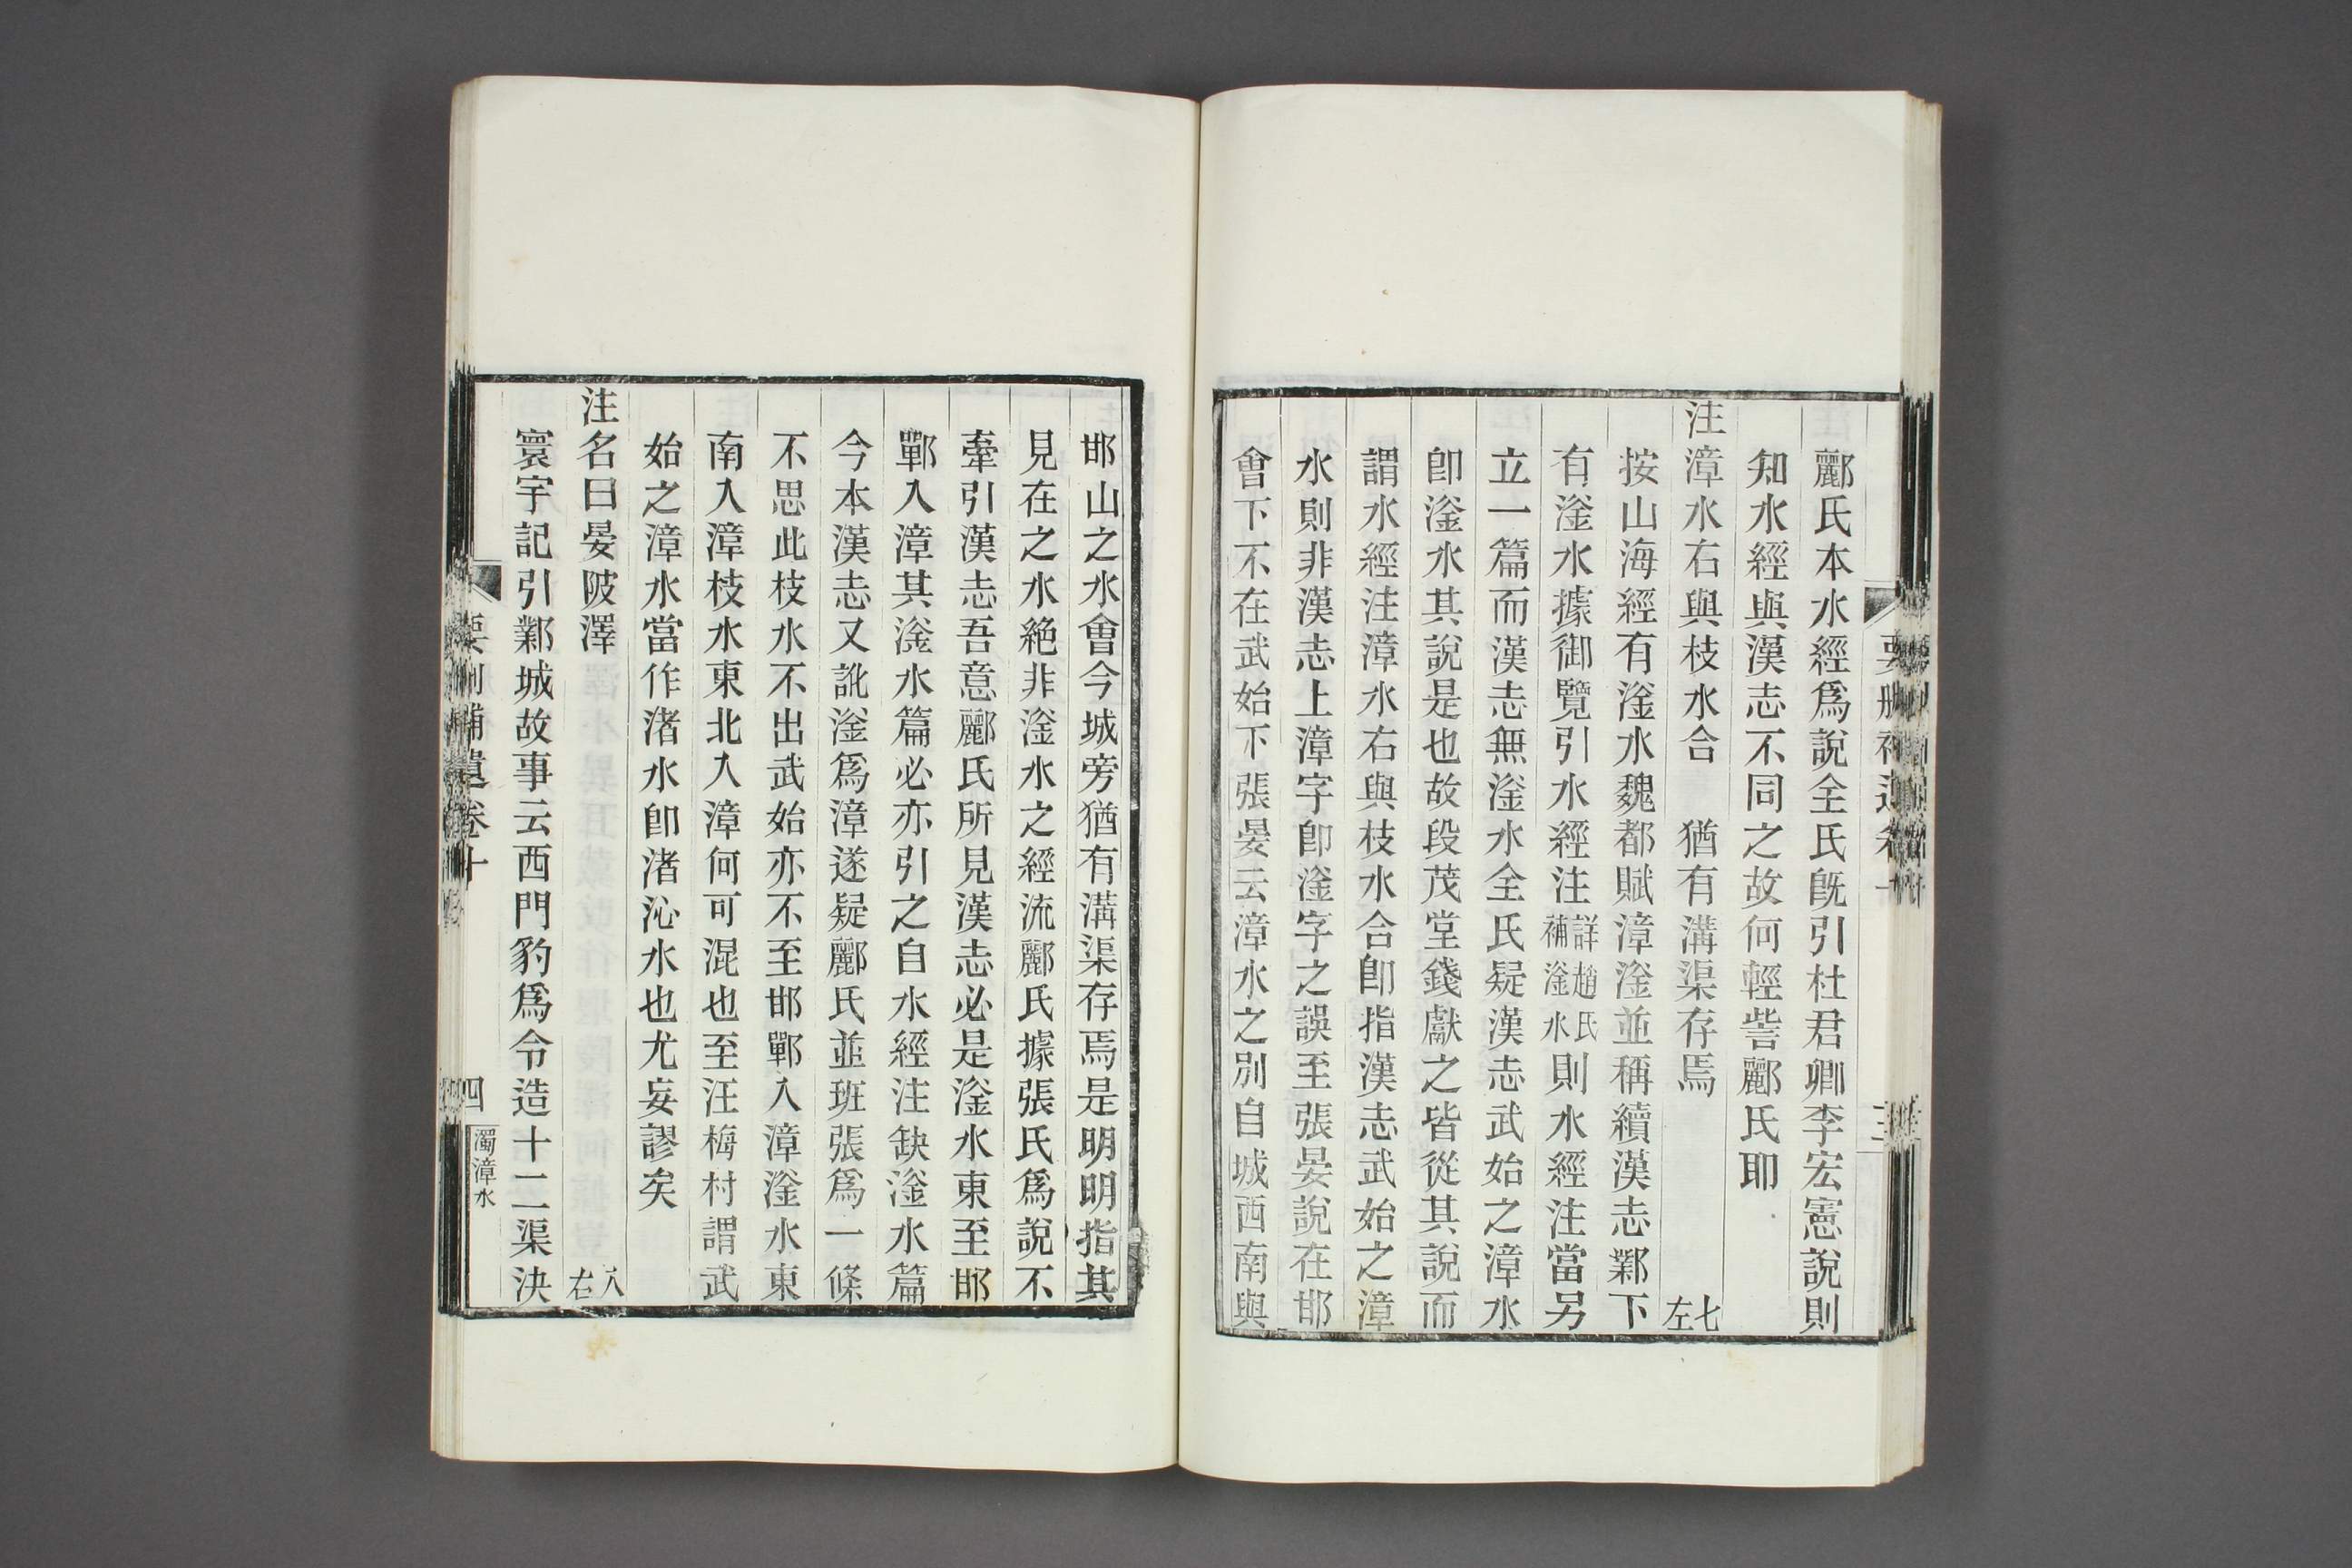 酈氏本水經爲說全氏旣引杜君卿李宏憲說則
知水經與漢志不同之故何輕訾酈氏耶
注漳水右與枝水合　猶有溝渠存焉　七左
按山海經有滏水魏都賦漳滏並稱續漢志鄴下
有滏水據御覽引水經注詳趙氏補滏水則水經注當另
立一篇而漢志無滏水全氏疑漢志武始之漳水
卽滏水其說是也故段茂堂錢獻之皆從其說而
謂水經注漳水右與枝水合卽指漢志武始之漳
水則非漢志上漳字卽滏字之誤至張晏說在邯
會下不在武始下張晏云漳水之別自城西南與
邯山之水會今城旁猶有溝渠存焉是明明指其
見在之水絶非滏水之經流酈氏據張氏爲說不
牽引漢志吾意酈氏所見漢志必是滏水東至邯
鄲入漳其滏水篇必亦引之自水經注缺滏水篇
今本漢志又訛滏爲漳遂疑酈氏並班張爲一條
不思此枝水不出武始亦不至邯鄲入漳滏水東
南入漳枝水東北入漳何可混也至汪梅村謂武
始之漳水當作渚水卽渚沁水也尤妄謬矣
注名曰晏陂澤　八右
寰宇記引鄴城故事云西門豹爲令造十二渠決
要刪補遺卷十
四
濁漳水